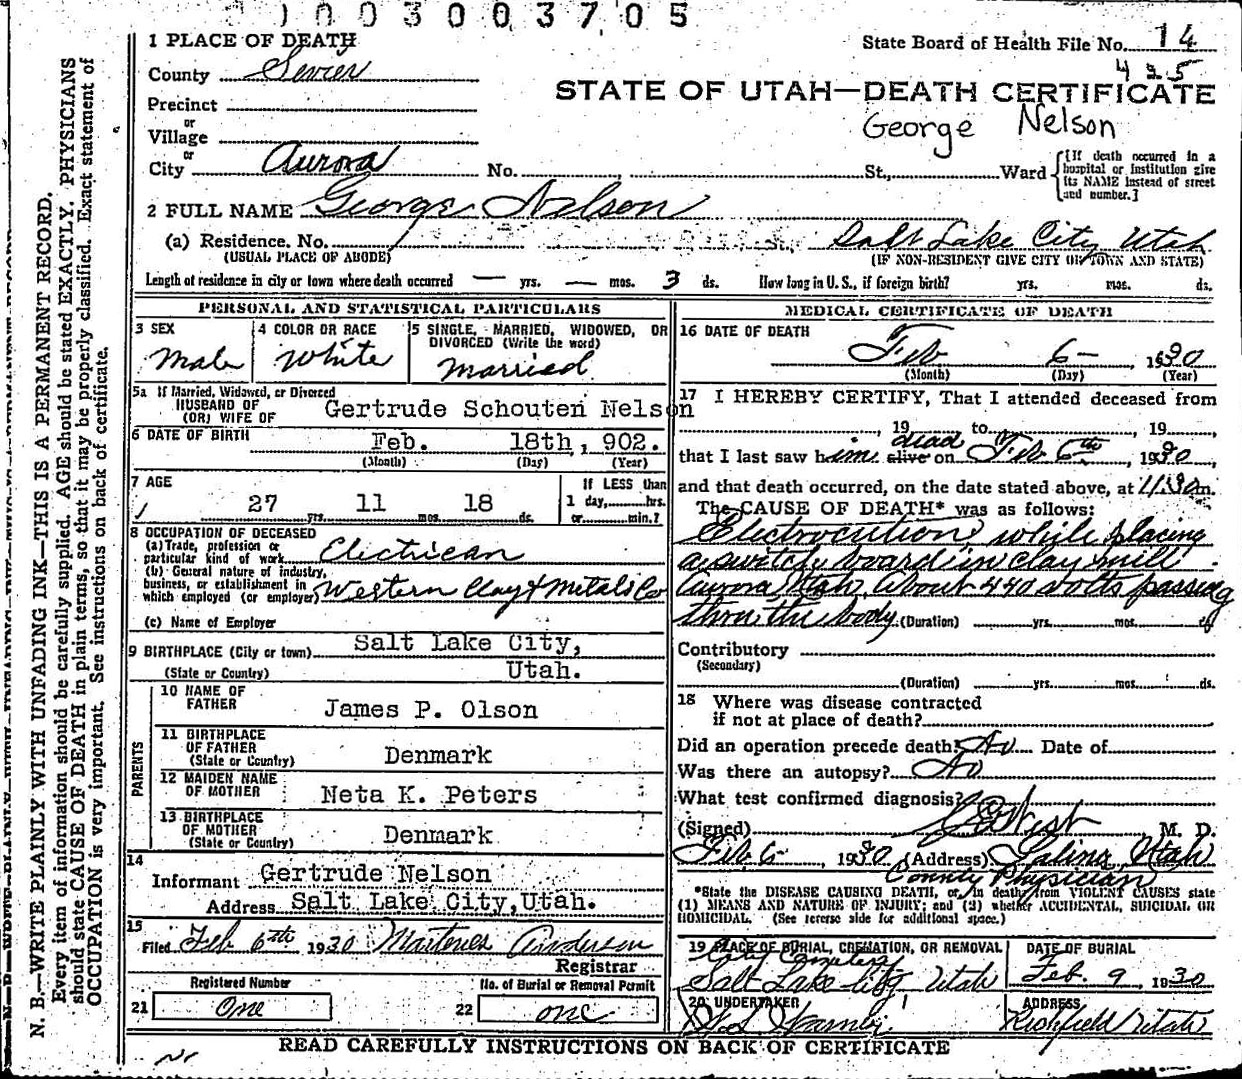 1003003705
State Board of Health File No. 14
425
1 PLACE OF DEATH
County Sevier
STATE OF UTAH—DEATH CERTIFICATE
George Nelson
Precinct
or
Village
or
City Aurora No. St., Ward
{[If death occurred in a hospital or institution give its NAME instead of street and number.]
2 FULL NAME George Nelson
(a) Residence. No. Salt Lake City Utah
(USUAL PLACE OF ABODE) (IF NON-RESIDENT GIVE CITY OR TOWN AND STATE)
Length of residence in city or town where death occurred — yrs. — mos. 3 ds. How long in U. S., if foreign birth? yrs. mos. ds.
PERSONAL AND STATISTICAL PARTICULARS
3 SEX
Male
4 COLOR OR RACE
White
5 SINGLE, MARRIED, WIDOWED, OR
DIVORCED (Write the word)
Married
5a If Married, Widowed, or Divorced
HUSBAND OF
(OR) WIFE OF Gertrude Schouten Nelson
6 DATE OF BIRTH Feb. 18th, 902.
(Month) (Day) (Year)
7 AGE
27 yrs. 11 mos. 18 ds.
If LESS than
1 day, hrs.
or min.?
8 OCCUPATION OF DECEASED
(a) Trade, profession or
particular kind of work Electrican
(b) General nature of industry,
business, or establishment in
which employed (or employer) Western Clay & Metals Co
(c) Name of Employer
9 BIRTHPLACE (City or town) Salt Lake City,
(State or Country) Utah.
PARENTS
10 NAME OF
FATHER James P. Olson
11 BIRTHPLACE
OF FATHER
(State or Country) Denmark
12 MAIDEN NAME
OF MOTHER Neta K. Peters
13 BIRTHPLACE
OF MOTHER
(State or Country) Denmark
14
Informant Gertrude Nelson
Address Salt Lake City, Utah.
15
Filed Feb 6th 1930 Anderson
Registrar
Registered Number
21 One
No. of Burial or Removal Permit
22 one
MEDICAL CERTIFICATE OF DEATH
16 DATE OF DEATH
Feb 6— 1930
(Month) (Day) (Year)
17 I HEREBY CERTIFY, That I attended deceased from
, 19 to , 19 ,
dead
that I last saw him alive on Feb 6th, 1930,
and that death occurred, on the date stated above, at 11:30 m.
The CAUSE OF DEATH* was as follows:
Electrocution while placing
a switch board in clay mill
Aurora Utah. About 440 volts passing
thru the body. (Duration) yrs. mos. ds
Contributory
(Secondary)
(Duration) yrs. mos. ds.
18 Where was disease contracted
if not at place of death?
Did an operation precede death? No Date of
Was there an autopsy? No
What test confirmed diagnosis?
(Signed) West M. D.
Feb 6—, 1930 (Address) Salina Utah
County Physician
*State the DISEASE CAUSING DEATH, or, in deaths from VIOLENT CAUSES state
(1) MEANS AND NATURE OF INJURY; and (2) whether ACCIDENTAL, SUICIDAL OR
HOMICIDAL. (See reverse side for additional space.)
19 PLACE OF BURIAL, CREMATION, OR REMOVAL
City Cemetery
Salt Lake City Utah
DATE OF BURIAL
Feb. 9 1930
20 UNDERTAKER
ADDRESS
Richfield Utah
READ CAREFULLY INSTRUCTIONS ON BACK OF CERTIFICATE
N. B.—WRITE PLAINLY WITH UNFADING INK—THIS IS A PERMANENT RECORD.
Every item of information should be carefully supplied. AGE should be stated EXACTLY. PHYSICIANS
should state CAUSE OF DEATH in plain terms, so that it may be properly classified. Exact statement of
OCCUPATION is very important. See instructions on back of certificate.